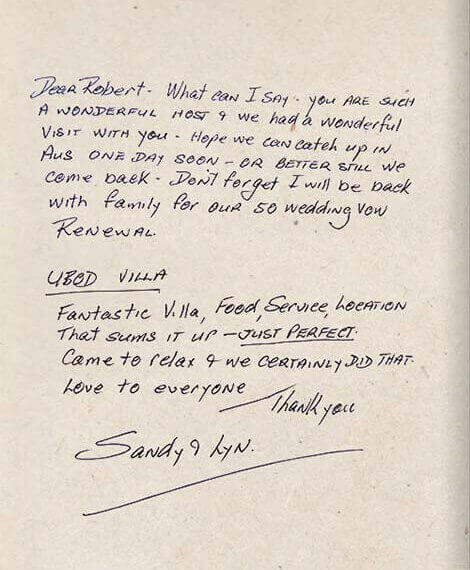 Dear Robert - What can I say - you are such
a wonderful host & we had a wonderful
visit with you - Hope we can catch up in
Aus one day soon - or better still we
come back - Don't forget I will be back
with family for our 50 wedding vow
Renewal.
UBUD VILLA
Fantastic Villa, Food, Service, Location
That sums it up - JUST PERFECT.
Came to relax & we certainly did that.
Love to everyone
Thank you
Sandy & Lyn.